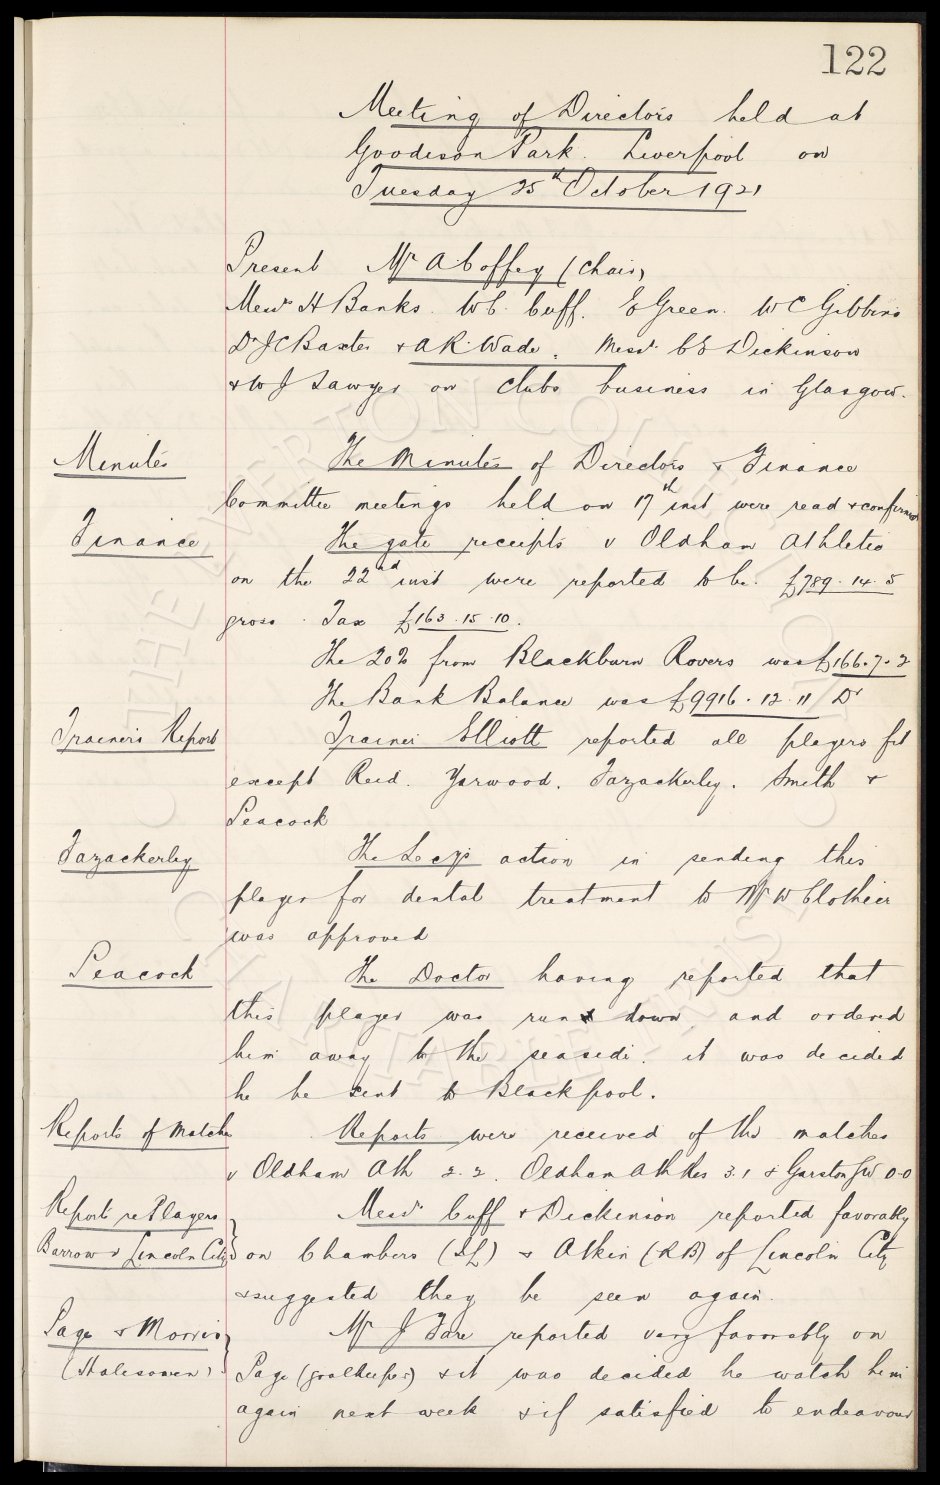 122
Meeting of Directors held at
Goodison Park. Liverpool on
Tuesday 25th October 1921
Present Mr A Coffey (Chair)
Messrs H Banks. W.C. Cuff. E Green. W C Gibbins
Dr J C Baxter & A R. Wade. Messrs C E Dickinson
& W J Sawyer on clubs business in Glasgow.
Minutes
The Minutes of Directors & Finance
Committee meetings held on 17th inst were read & confirmed
Finance
The gate receipts v Oldham Athletic
on the 22nd inst were reported to be. £789.14.5
gross. Tax £163.15.10.
The 20% from Blackburn Rovers was £166.7.2
The Bank Balance was £9916.12.11 Dr
Trainers Report
Trainer Elliott reported all players fit
except Reid. Yarwood. Fazackerley. Smith &
Peacock
Fazackerley
The Secy's action in sending this
player for dental treatment to Mr W Clothier
was approved
Peacock
The Doctor having reported that
this player was run down, and ordered
him away to the seaside. it was decided
he be sent to Blackpool.
Reports of Matches
Reports were received of the matches
v Oldham Ath 2.2. Oldham Ath Res 3.1 & Garston GW 0-0
Report re Players
Barrow v Lincoln City
Messrs Cuff & Dickinson reported favorably
on Chambers (IL) & Atkin (RB) of Lincoln City
& suggested they be seen again.
Page & Morris
(Halesowen)
Mr J Fare reported very favorably on
Page (goalkeeper) & it was decided he watch him
again next week & if satisfied to endeavour
THE EVERTON COLLECTION
CHARITABLE TRUST